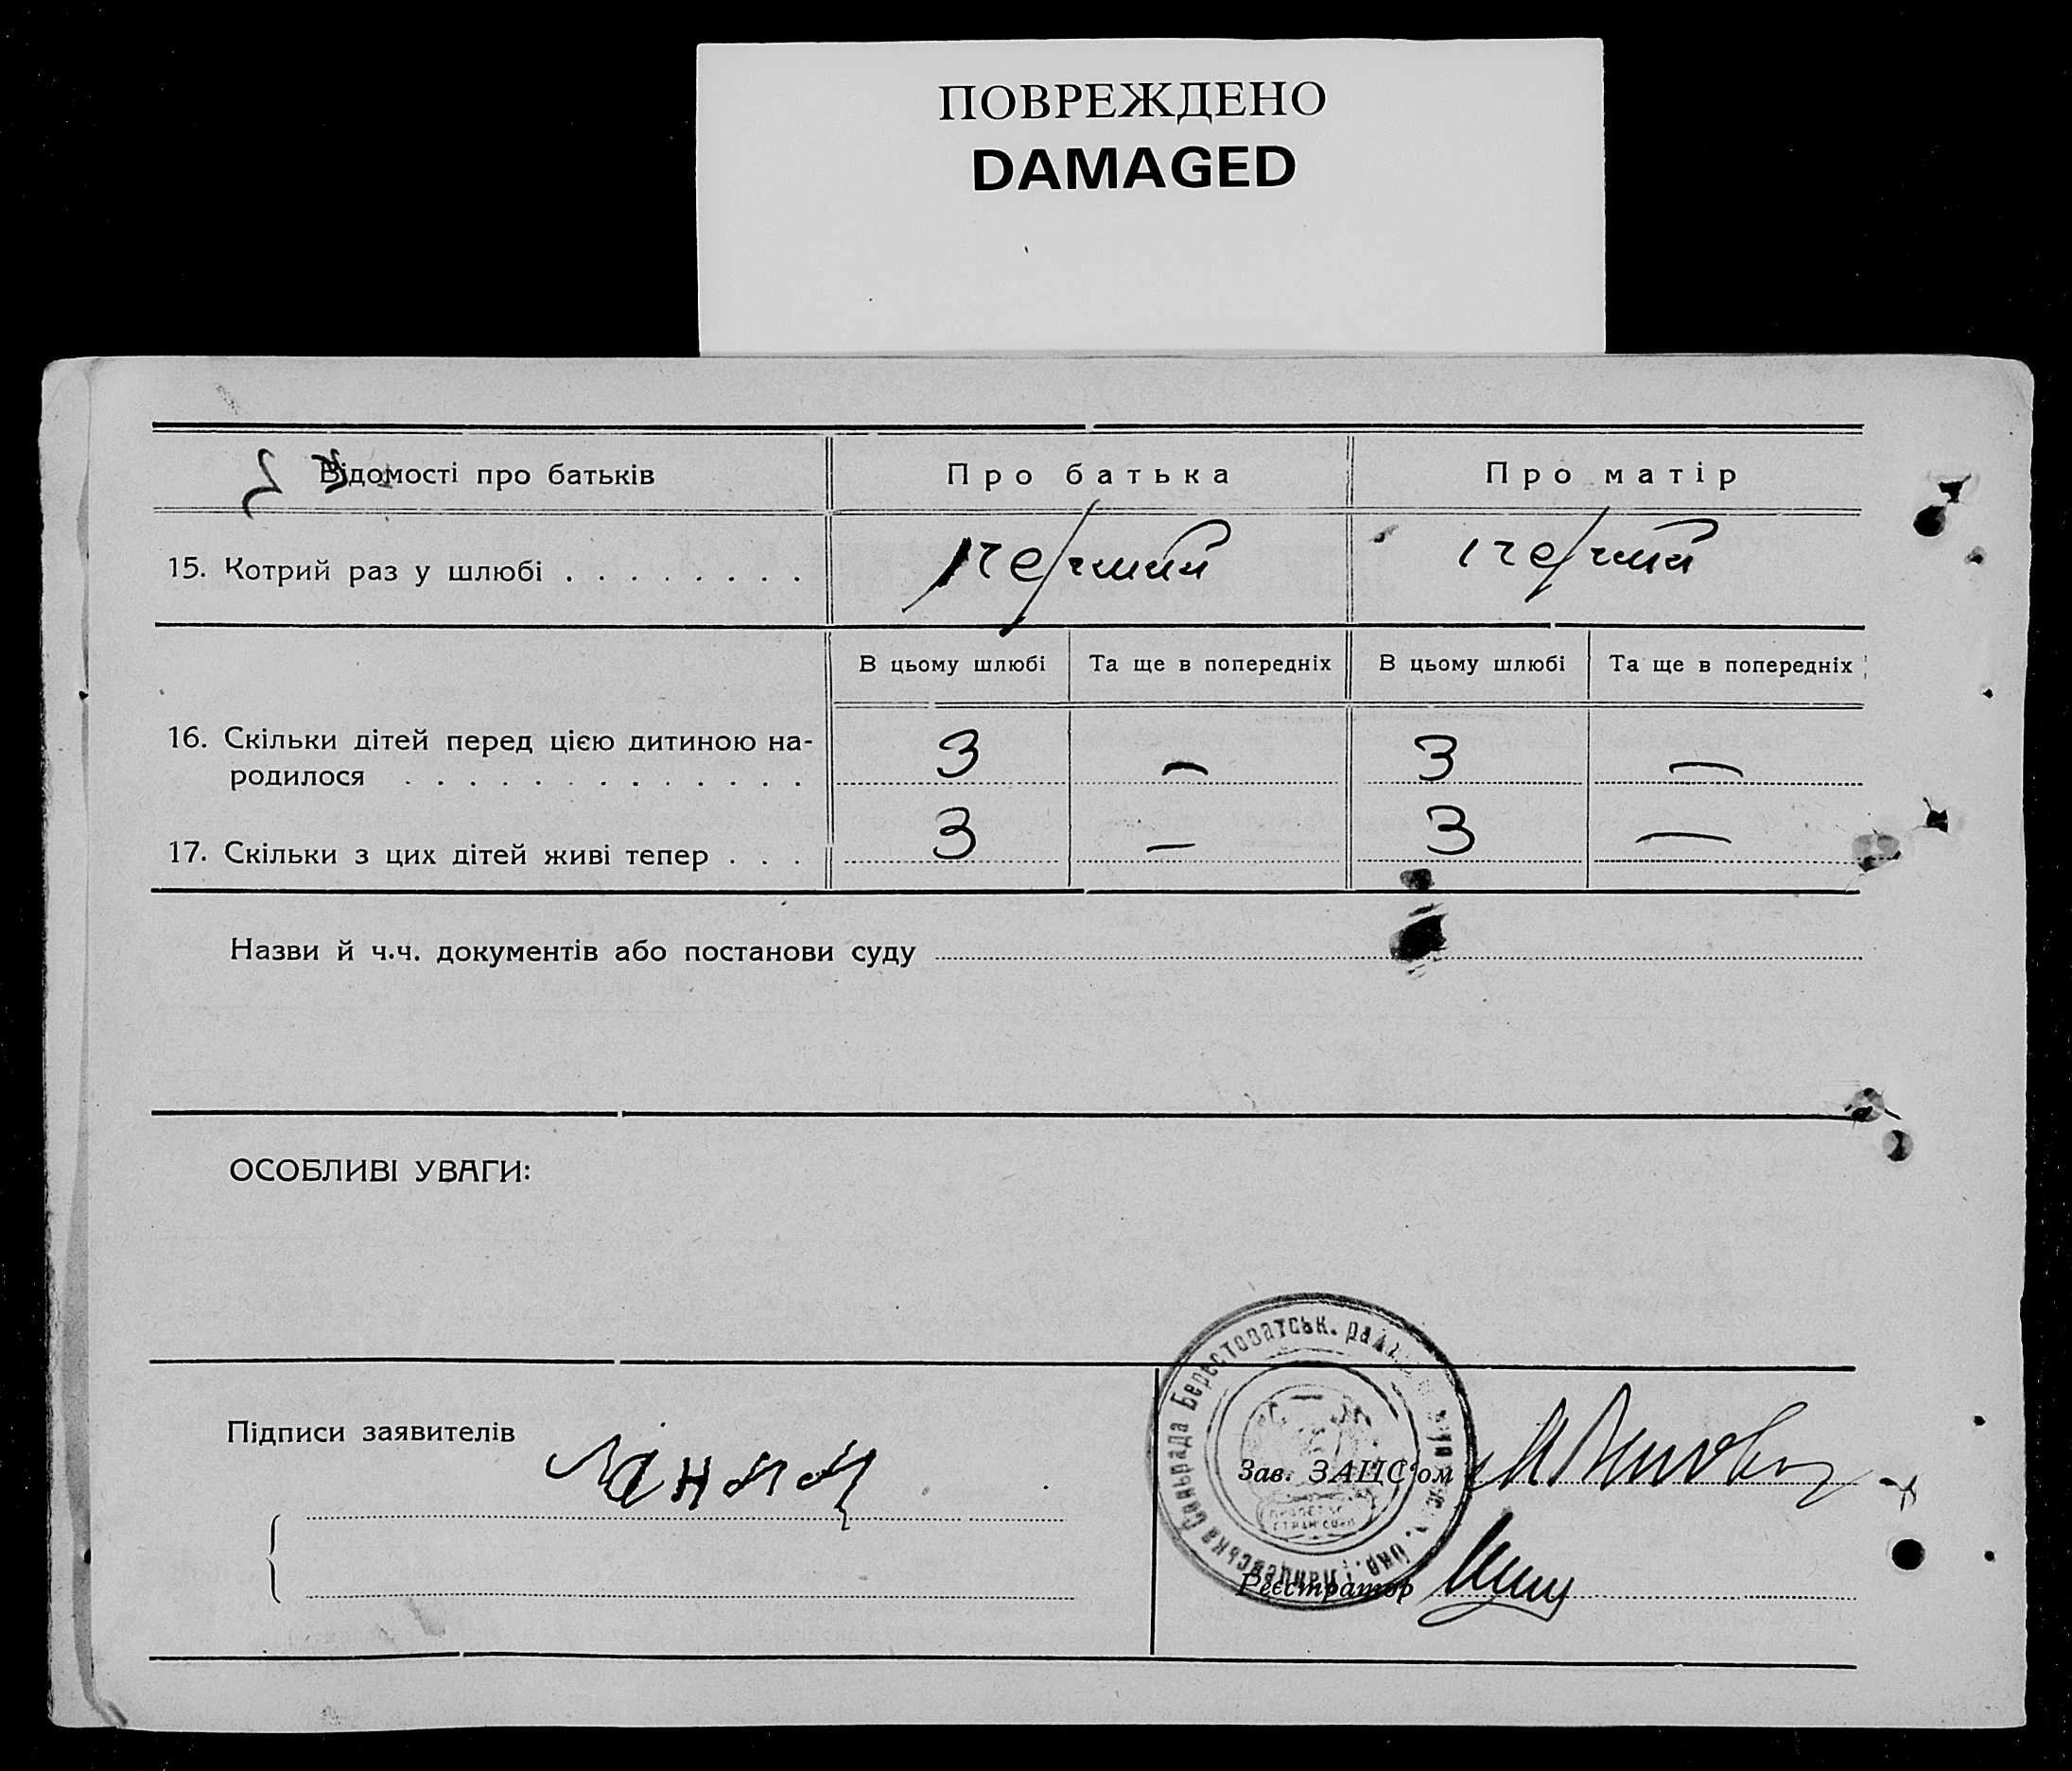 ПОВРЕЖДЕНО
DAMAGED
Відомості про батьків
Про батька
Про матір
15. Котрий раз у шлюбі . . . . . . . .
перший
перший
В цьому шлюбі
Та ще в попередніх
В цьому шлюбі
Та ще в попередніх
16. Скільки дітей перед цією дитиною на-
родилося . . . . . . . . . . . . .
3 — 3 —
17. Скільки з цих дітей живі тепер . . .
3 — 3 —
Назви й ч.ч. документів або постанови суду
ОСОБЛИВІ УВАГИ:
Підписи заявителів
Зав. ЗАЦС'ом
Реєстратор
Сільрада Берестоватськ.